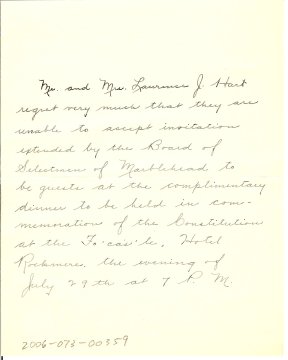 Mr. and Mrs. Laurence J. Hart
regret very much that they are
unable to accept invitation
extended by the Board of
Selectmen of Marblehead to
be guests at the complimentary
dinner to be held in com-
memoration of the Constitution
at the Fo'cas'le, Hotel
Rockmere, the evening of
July 29th at 7 P.M.
2006-073-00359